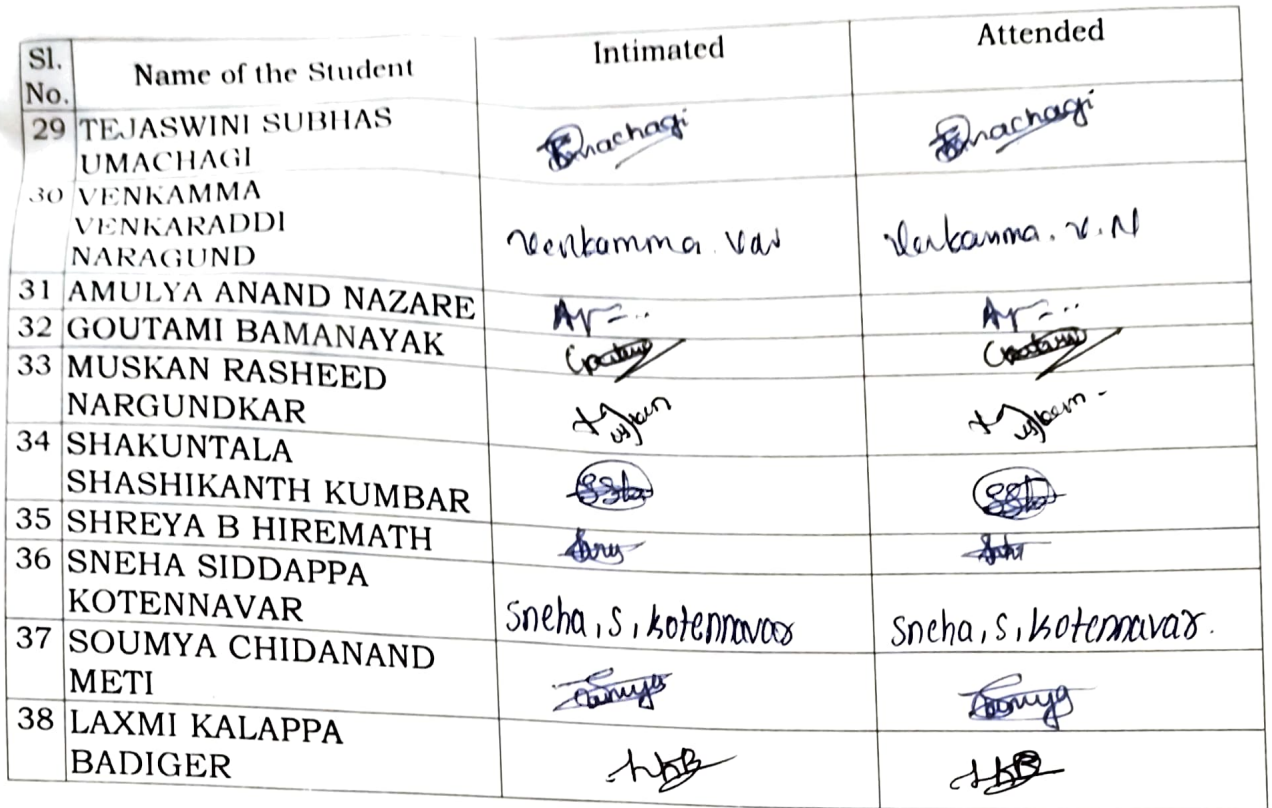 Sl. No. Name of the Student Intimated Attended
29 TEJASWINI SUBHAS
UMACHAGI
Umachagi Umachagi
30 VENKAMMA
VENKARADDI
NARAGUND
Venkamma. Venkamma. V. N
31 AMULYA ANAND NAZARE
32 GOUTAMI BAMANAYAK
33 MUSKAN RASHEED
NARGUNDKAR
34 SHAKUNTALA
SHASHIKANTH KUMBAR
35 SHREYA B HIREMATH
36 SNEHA SIDDAPPA
KOTENNAVAR
Sneha, S, kotennavar Sneha, S, kotennavar.
37 SOUMYA CHIDANAND
METI
38 LAXMI KALAPPA
BADIGER
LKB LKB